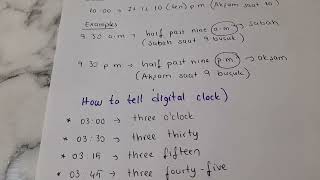 10:00 → It is 10 (ten) p m (Akşam saat 10)
Examples
9.30 a.m → half past nine a.m → sabah
(Sabah saat 9 buçuk)
9.30 p m → half past nine p m → akşam
(Akşam saat 9 buçuk)
How to tell digital clock)
* 03:00 → three o'clock
* 03:30 → three thirty
* 03:15 → three fifteen
* 03 45 → three fourty-five